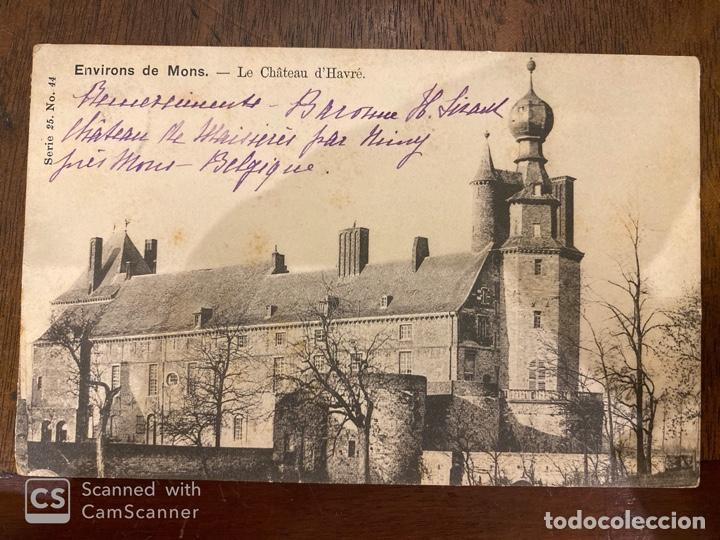 Environs de Mons. — Le Château d'Havré.
Serie 25. No. 44
Remerciements - Baronne H. Sirant
Château de Maisières par Nimy
près Mons - Belgique.
CS Scanned with
CamScanner
todocoleccion